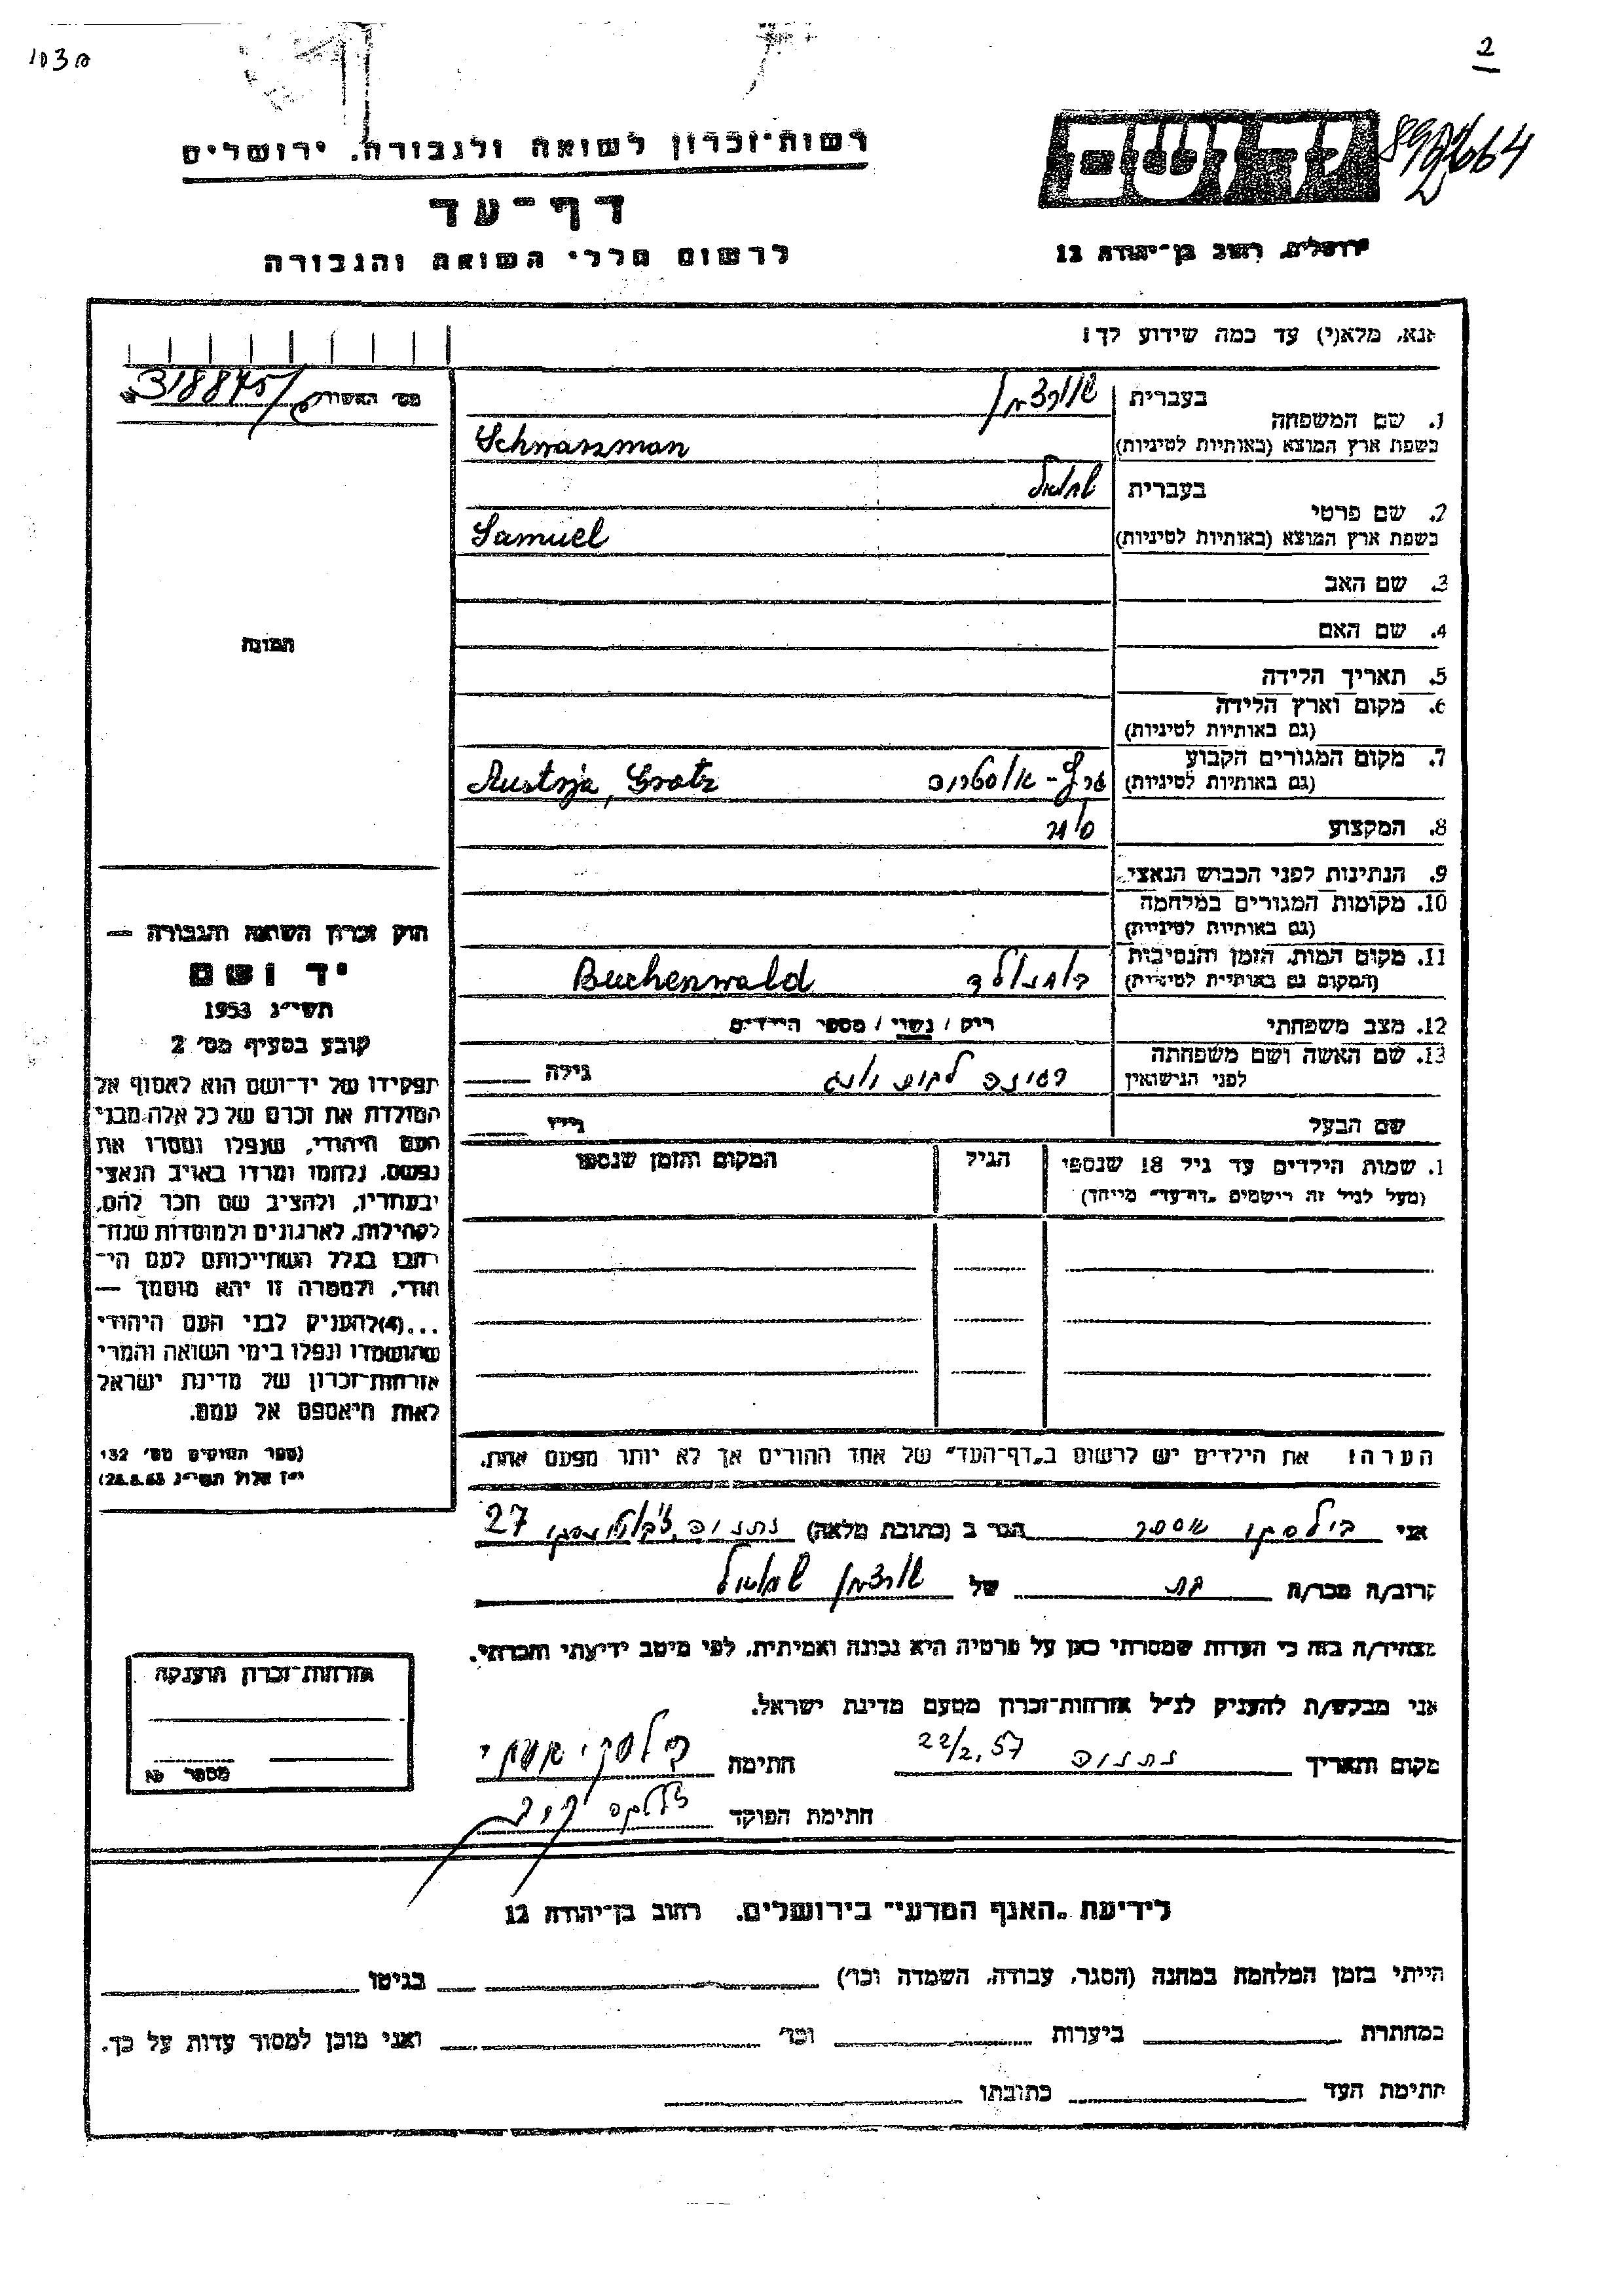 2
רשות־זכרון לשואה ולגבורה, ירושלים
דף־עד
לרשום חללי השואה והגבורה
יד ושם
ירושלים, רחוב בן־יהודה 12
אנא, מלא(י) עד כמה שידוע לך!
מס׳ האשור 318875
בעברית שוורצמן
1. שם המשפחה
בשפת ארץ המוצא (באותיות לטיניות) Schwarzman
בעברית שמואל
2. שם פרטי
בשפת ארץ המוצא (באותיות לטיניות) Samuel
3. שם האב
4. שם האם
5. תאריך הלידה
6. מקום וארץ הלידה
(גם באותיות לטיניות)
7. מקום המגורים הקבוע
(גם באותיות לטיניות) גרץ - אוסטריה Austrja, Gratz
8. המקצוע
9. הנתינות לפני הכבוש הנאצי
10. מקומות המגורים במלחמה
(גם באותיות לטיניות)
11. מקום המות, הזמן והנסיבות
(המקום גם באותיות לטיניות) בוכנולד Buchenwald
12. מצב משפחתי רוק / נשוי / מספר הילדים
13. שם האשה ושם משפחתה
לפני הנישואין רגינה לבית גילה
שם הבעל גילו
1. שמות הילדים עד גיל 18 שנספו הגיל המקום והזמן שנספו
(מעל לגיל זה רושמים „דף־עד" מיוחד)
הערה! את הילדים יש לרשום ב„דף־העד" של אחד ההורים אך לא יותר מפעם אחת.
אני בילסקי אסתר הגר ב (כתובת מלאה) נתניה, ז'בוטינסקי 27
קרוב/ה מכר/ה בת של שוורצמן שמואל
מצהיר/ה בזה כי העדות שמסרתי כאן על פרטיה היא נכונה ואמיתית, לפי מיטב ידיעתי והכרתי.
אני מבקש/ת להעניק לנ״ל אזרחות־זכרון מטעם מדינת ישראל.
מקום ותאריך נתניה 22/2.57 חתימה
חתימת הפוקד
התמונה
חוק זכרון השואה והגבורה —
יד ושם
תשי״ג 1953
קובע בסעיף מס׳ 2
תפקידו של יד־ושם הוא לאסוף אל
המולדת את זכרם של כל אלה מבני
העם היהודי, שנפלו ומסרו את
נפשם, נלחמו ומרדו באויב הנאצי
ובעוזריו, ולהציב שם וזכר להם,
לקהילות, לארגונים ולמוסדות שנח־
רבו בגלל השתייכותם לעם הי־
הודי, ולמטרה זו יהא מוסמך —
...(4)להעניק לבני העם היהודי
שהושמדו ונפלו בימי השואה והמרי
אזרחות־זכרון של מדינת ישראל
לאות היאספם אל עמם.
(ספר החוקים מס׳ 132
י״ז אלול תשי״ג 28.8.53)
אזרחות־זכרון הוענקה
מספר
לידיעת „האגף המדעי" בירושלים, רחוב בן־יהודה 12
הייתי בזמן המלחמה במחנה (הסגר, עבודה, השמדה וכו׳) בגיטו
במחתרת ביערות וכו׳ ואני מוכן למסור עדות על כך.
חתימת העד כתובתו